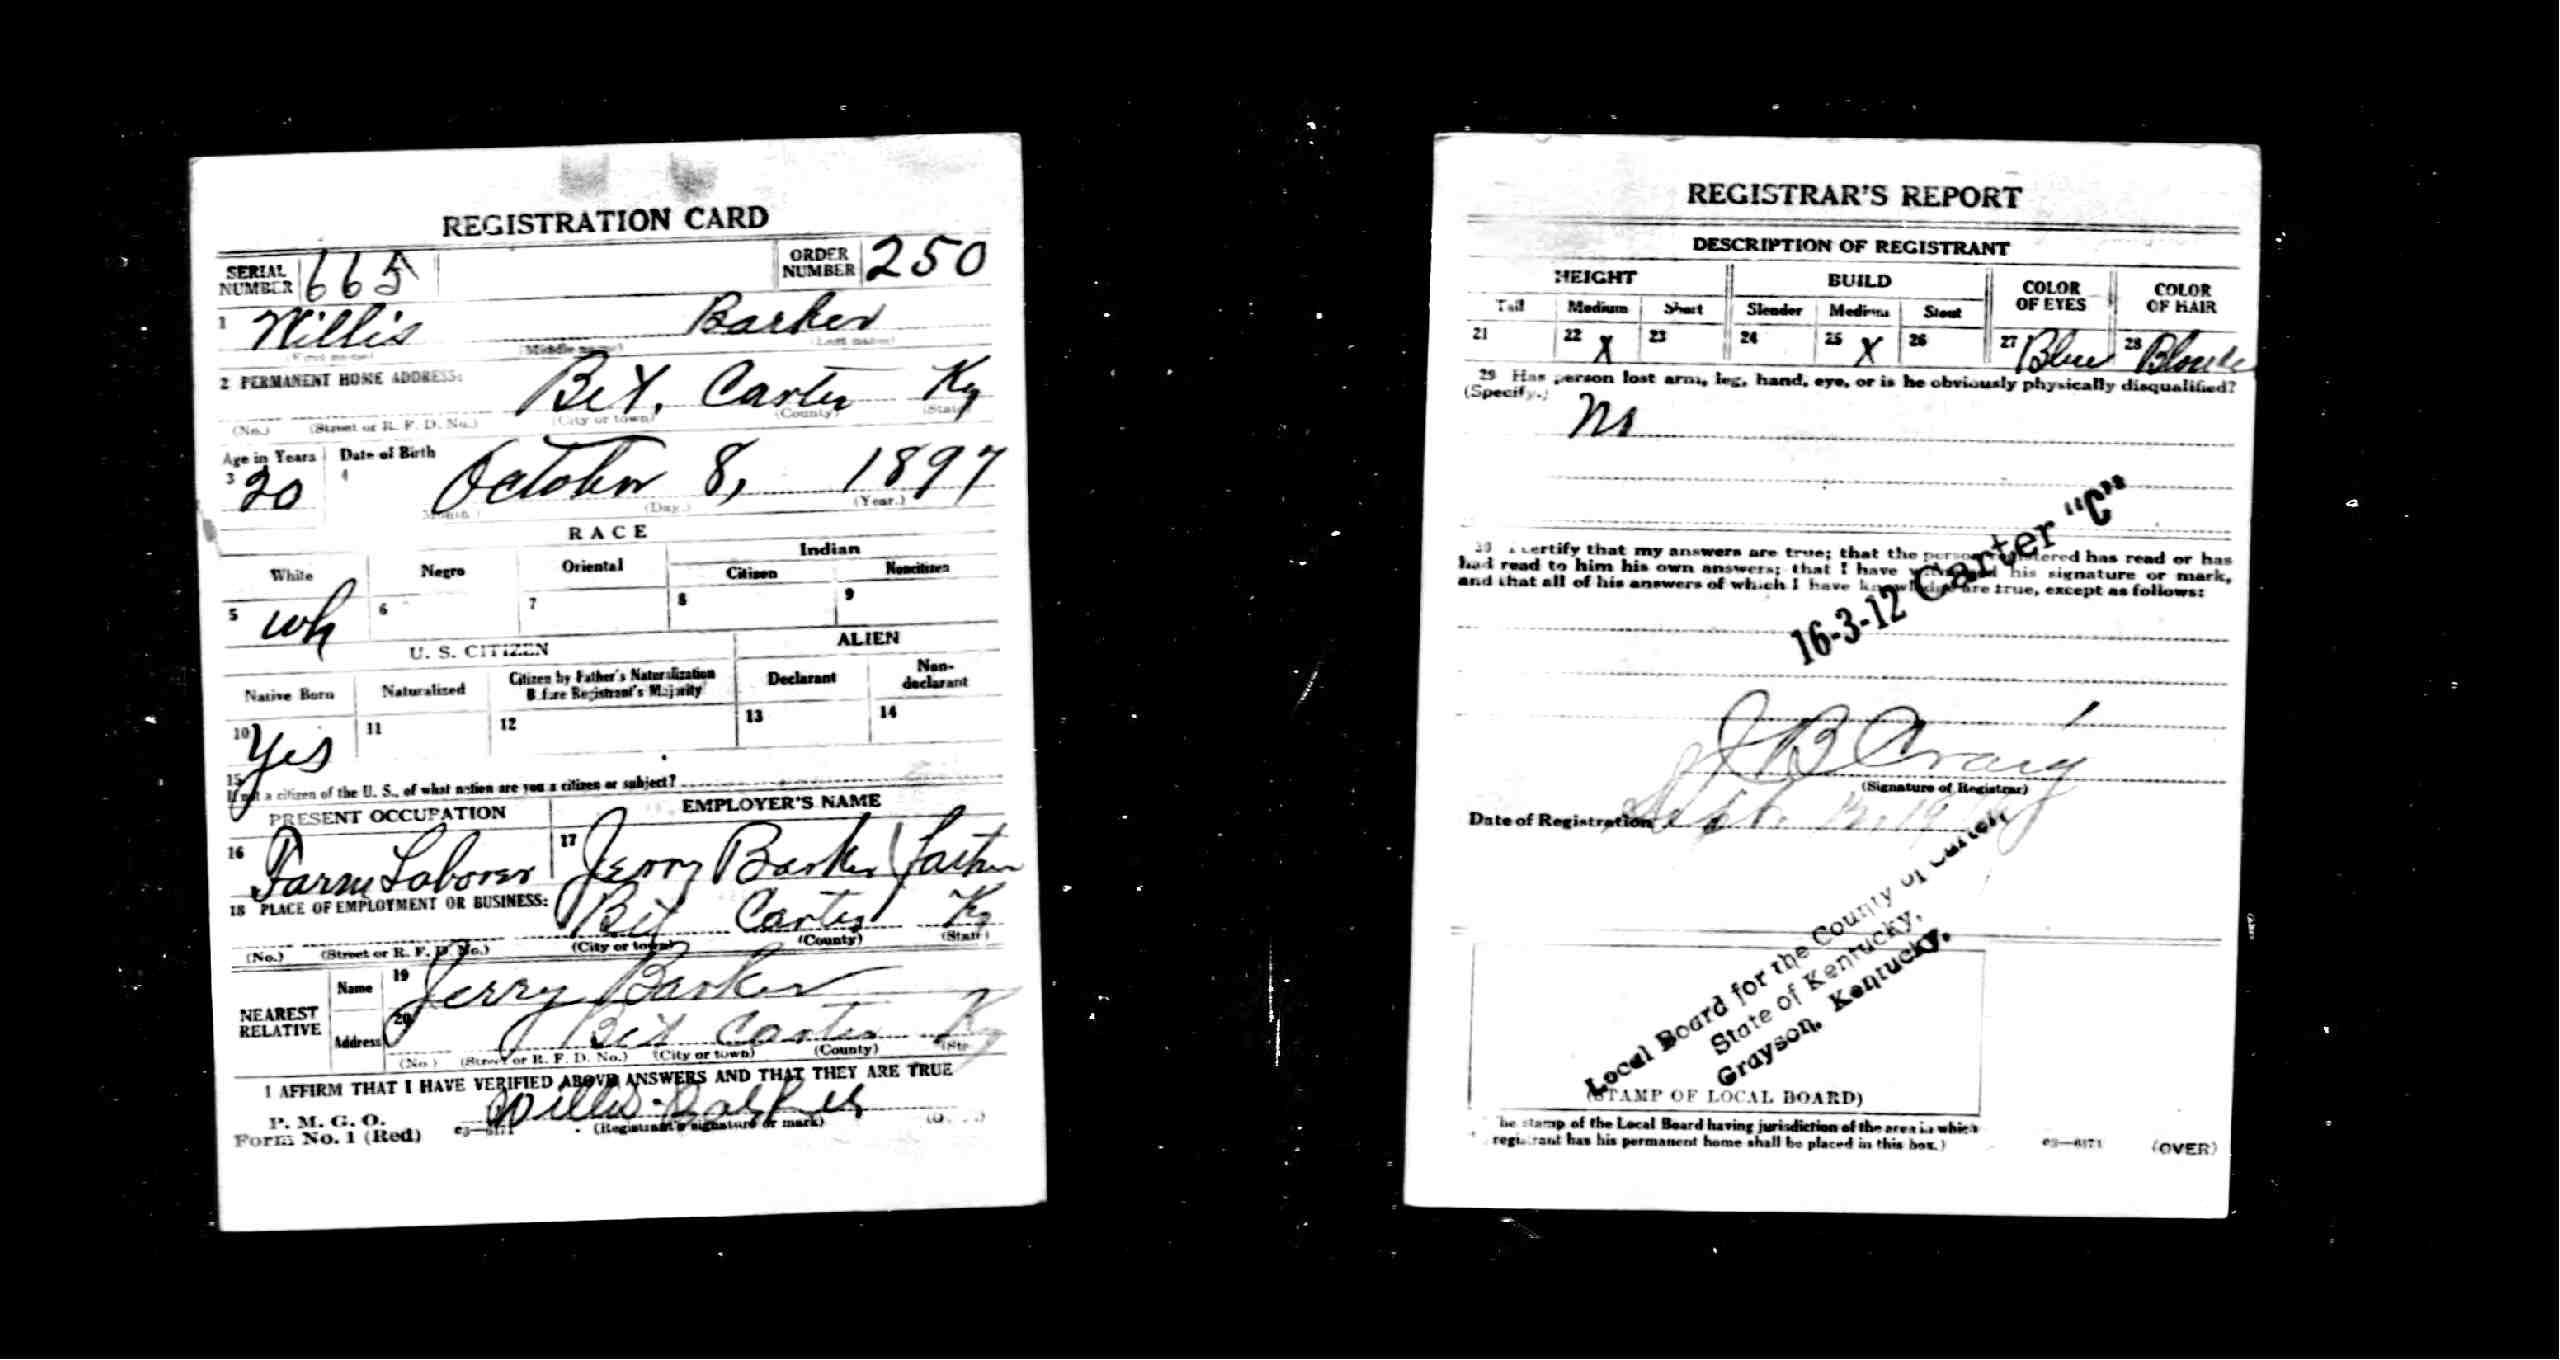 REGISTRATION CARD
SERIAL NUMBER 665 ORDER NUMBER 250
1 Willis Barker
(First name) (Middle name) (Last name)
2 PERMANENT HOME ADDRESS:
Bet, Carter Ky
(No.) (Street or R. F. D. No.) (City or town) (County) (State)
Age in Years Date of Birth
3 20 4 October 8, 1897
(Month.) (Day.) (Year.)
RACE
White Negro Oriental Indian
Citizen Noncitizen
5 wh 6 7 8 9
U. S. CITIZEN ALIEN
Native Born Naturalized Citizen by Father's Naturalization Before Registrant's Majority Declarant Non-declarant
10 Yes 11 12 13 14
15
If not a citizen of the U. S., of what nation are you a citizen or subject?
PRESENT OCCUPATION EMPLOYER'S NAME
16 Farm Laborer 17 Jerry Barker (father
18 PLACE OF EMPLOYMENT OR BUSINESS:
Bet Carter Ky
(No.) (Street or R. F. D. No.) (City or town) (County) (State)
NEAREST RELATIVE Name 19 Jerry Barker
Address 20 Bet Carter Ky
(No.) (Street or R. F. D. No.) (City or town) (County) (State)
I AFFIRM THAT I HAVE VERIFIED ABOVE ANSWERS AND THAT THEY ARE TRUE
P. M. G. O.
Form No. 1 (Red) c3—6171 Willis Barker
(Registrant's signature or mark)
REGISTRAR'S REPORT
DESCRIPTION OF REGISTRANT
HEIGHT BUILD COLOR OF EYES COLOR OF HAIR
Tall Medium Short Slender Medium Stout
21 22 X 23 24 25 X 26 27 Blue 28 Blonde
29 Has person lost arm, leg, hand, eye, or is he obviously physically disqualified?
(Specify.)
No
30 I certify that my answers are true; that the person registered has read or has
had read to him his own answers; that I have witnessed his signature or mark,
and that all of his answers of which I have knowledge are true, except as follows:
16-3-12 Carter "C"
J B Craig
(Signature of Registrar)
Date of Registration Sept. 12, 19
Local Board for the County of Carter,
State of Kentucky,
Grayson, Kentucky.
(STAMP OF LOCAL BOARD)
The stamp of the Local Board having jurisdiction of the area in which
registrant has his permanent home shall be placed in this box.)
c3—6171 (OVER)